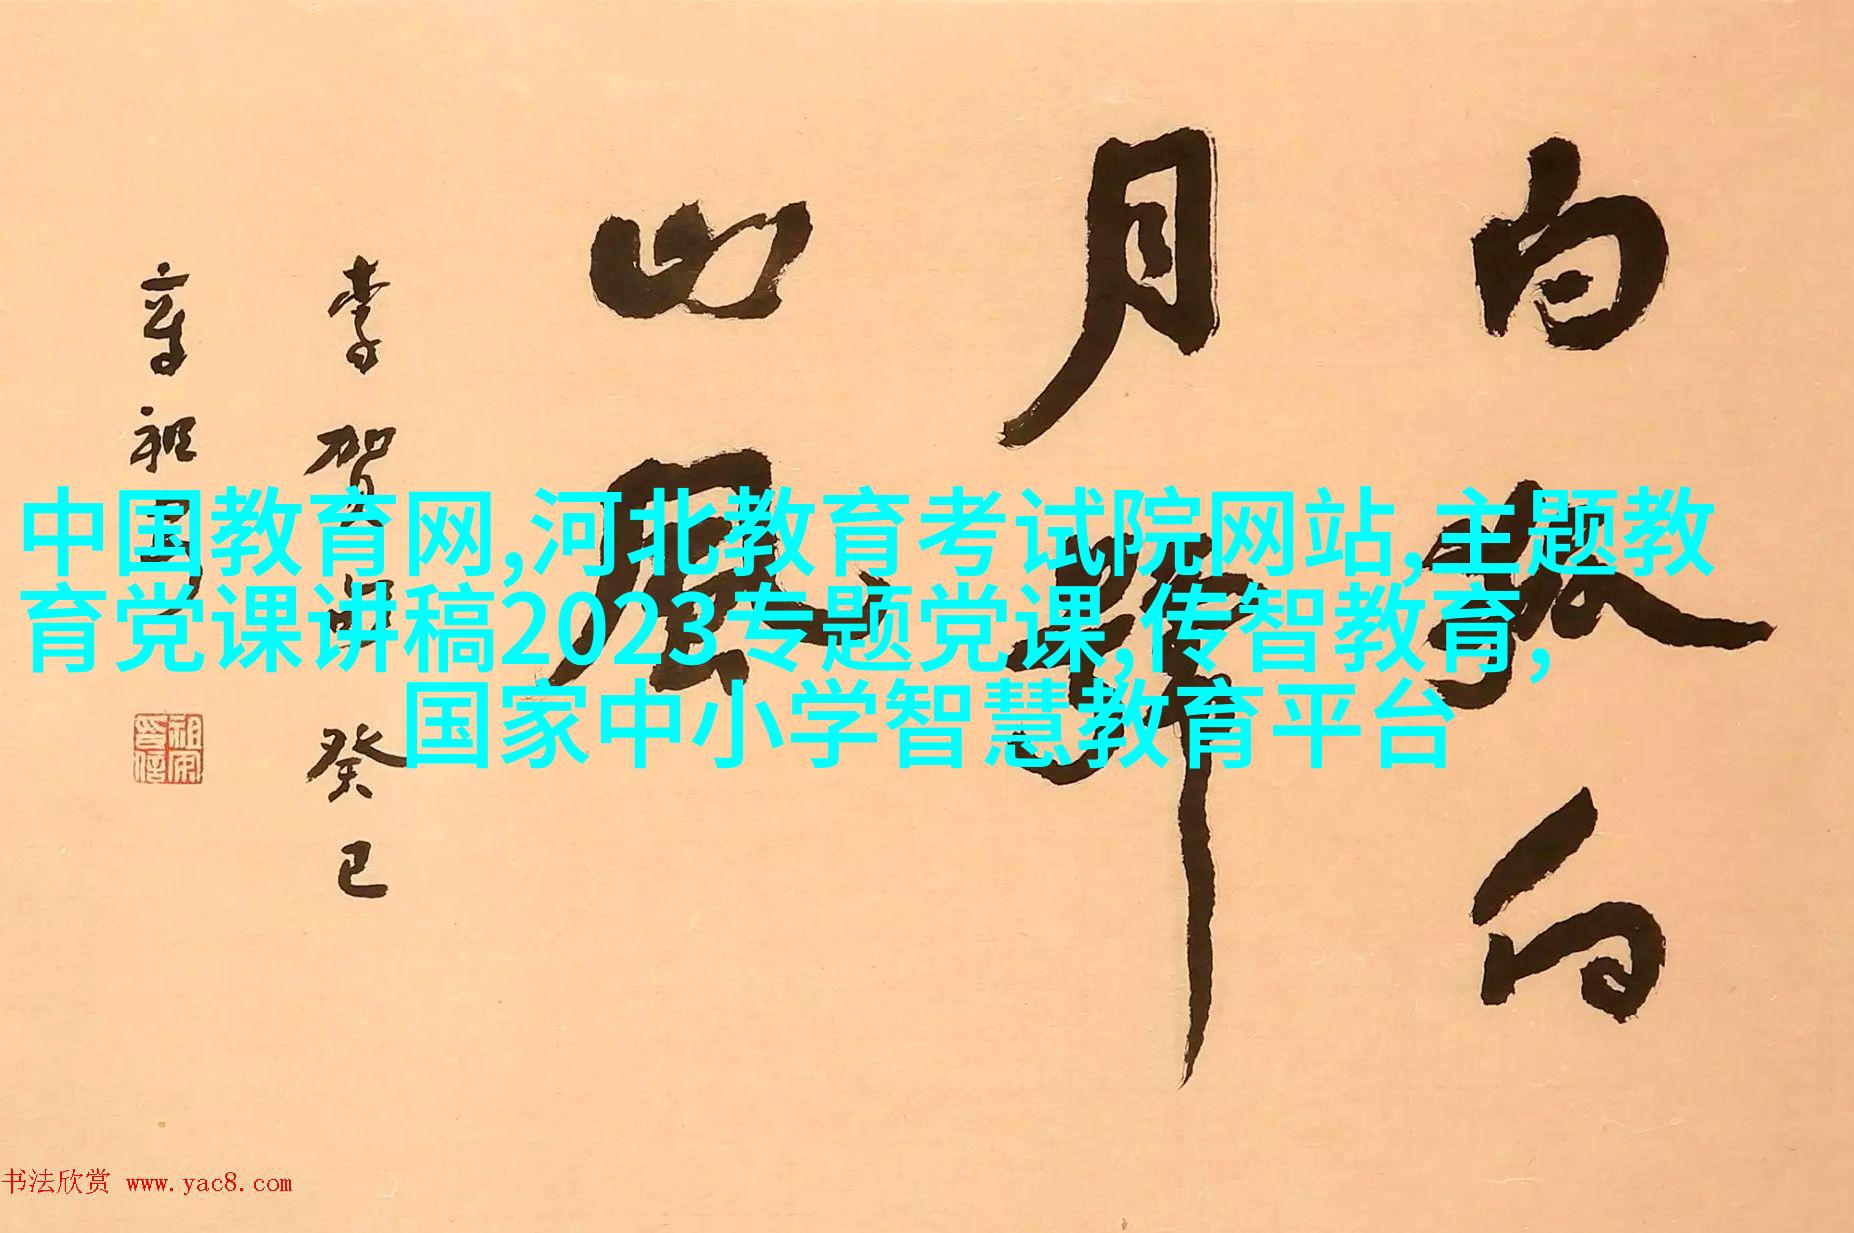 白狐向
月號
山風
李賀 癸巳
章祖
中国教育网,河北教育考试院网站,主题教
育党课讲稿2023专题党课,传智教育,
国家中小学智慧教育平台
书法欣赏 www.yac8.com